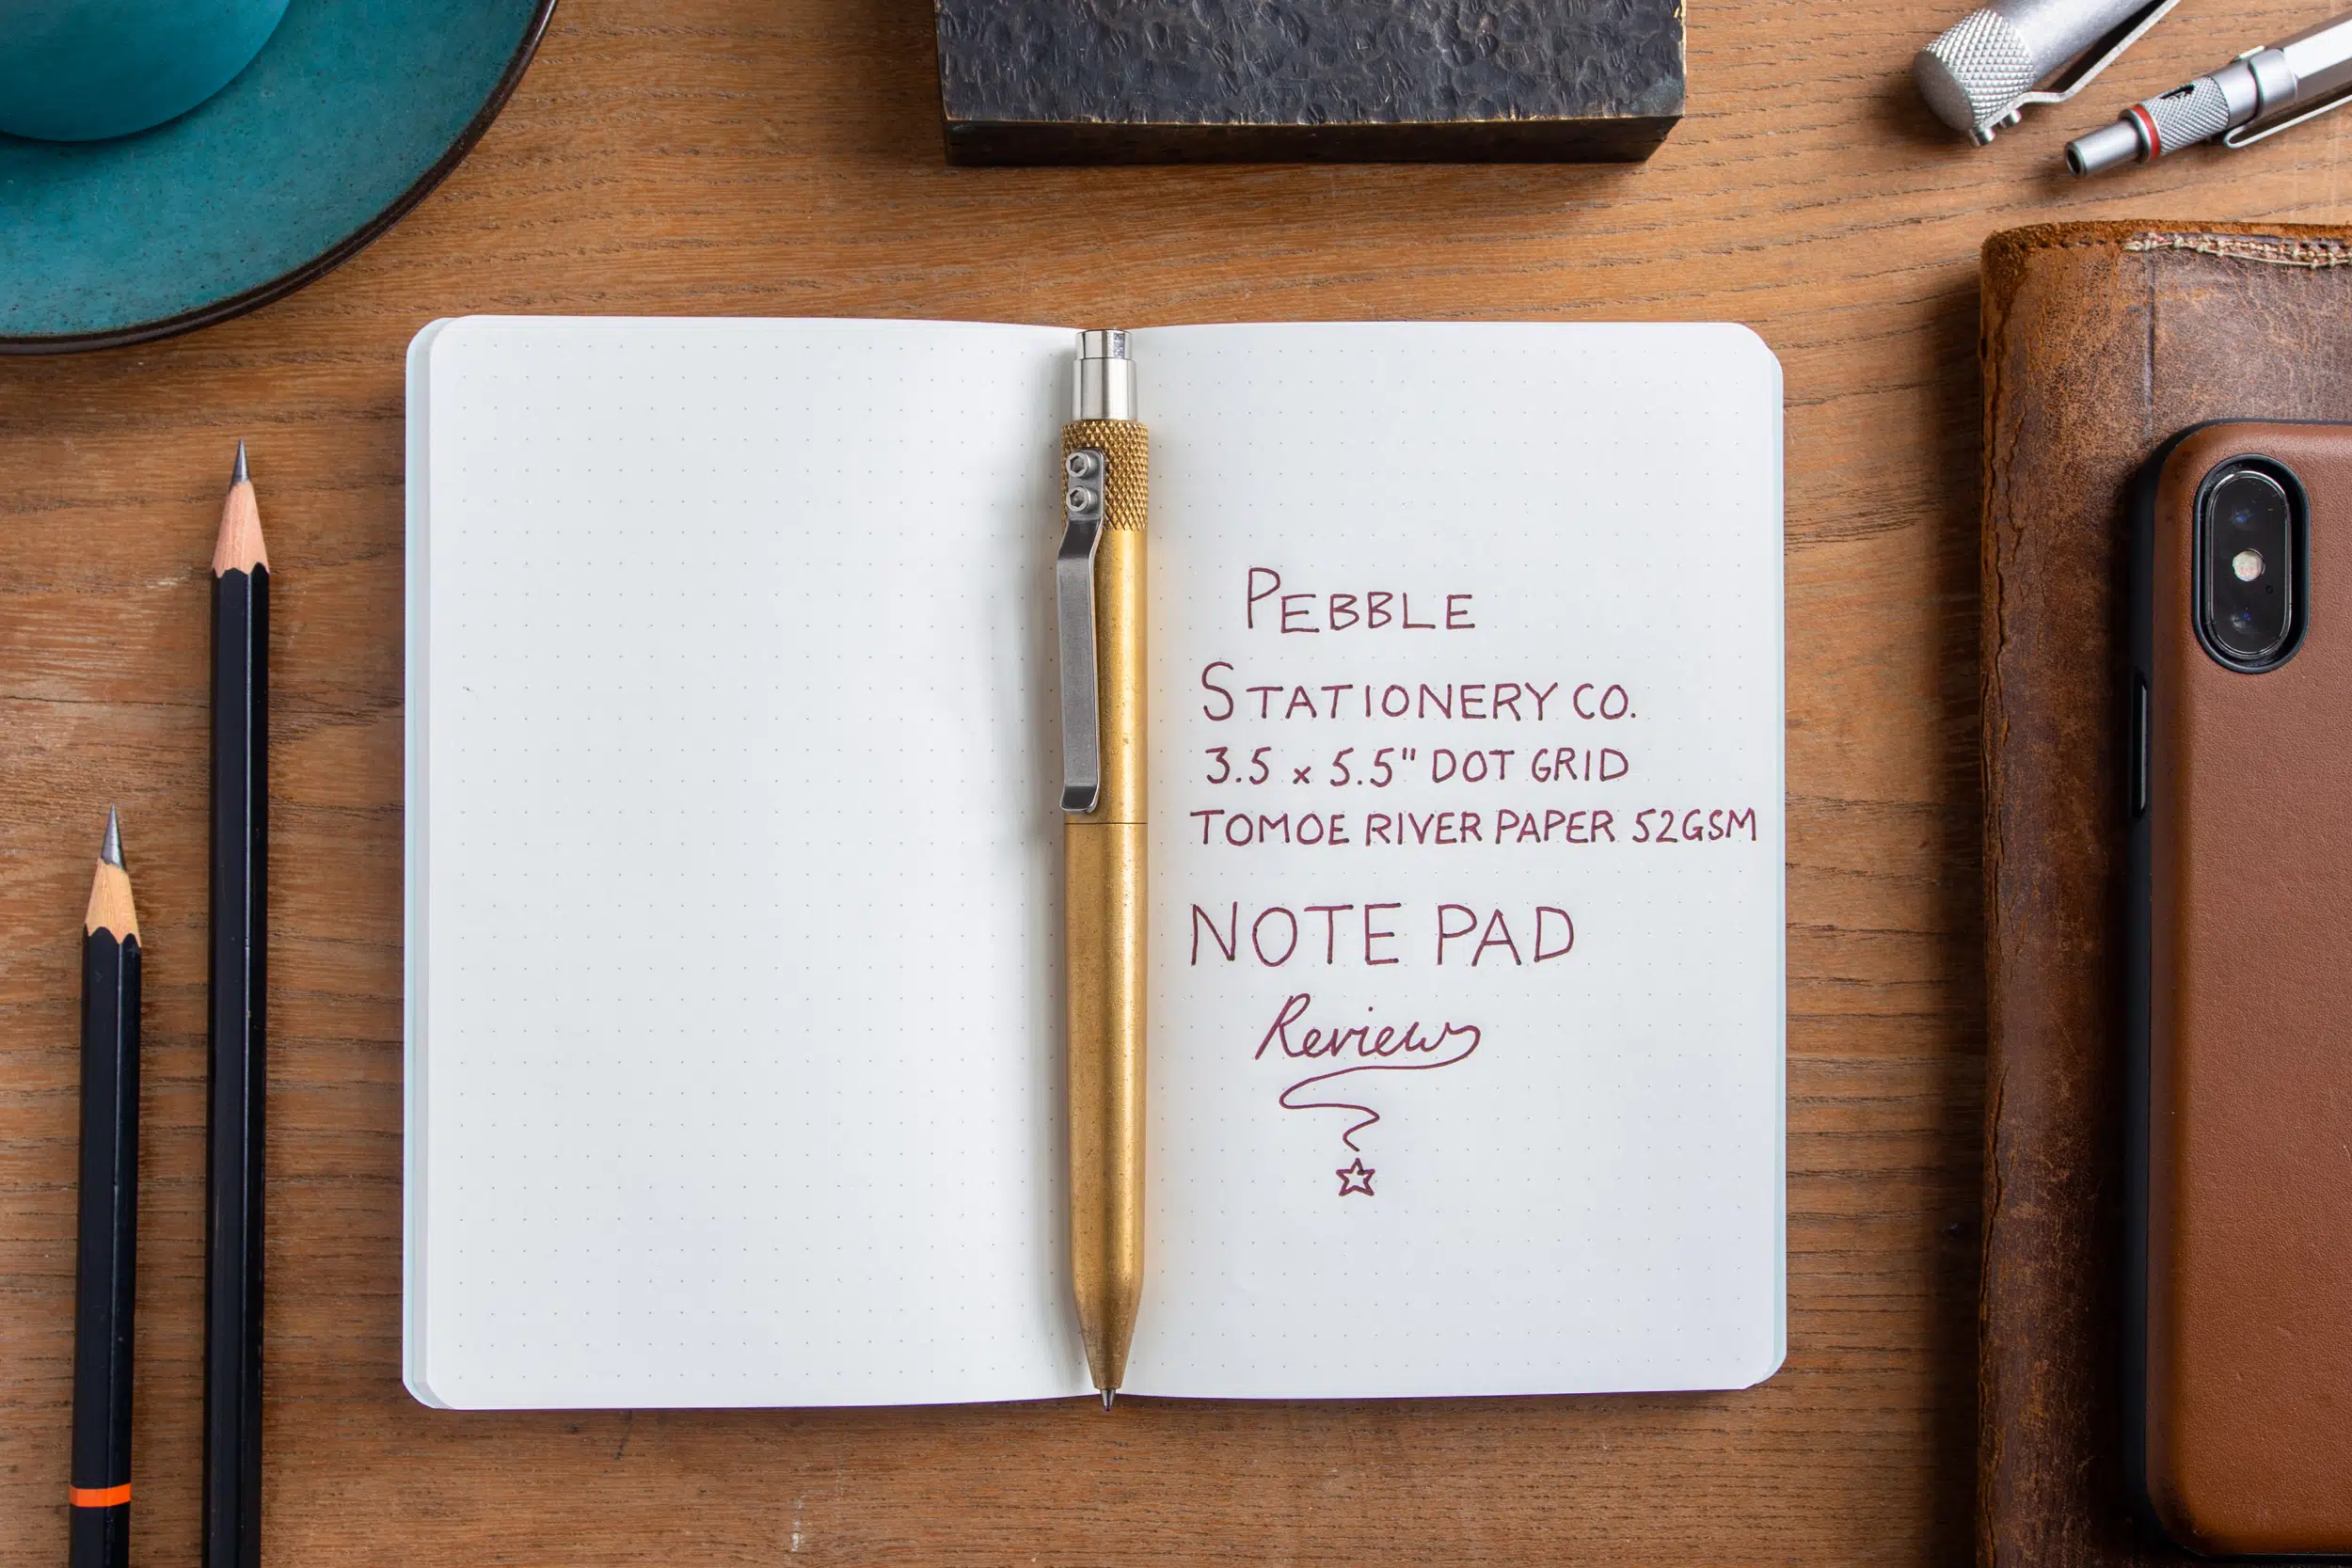 PEBBLE
STATIONERY CO.
3.5 x 5.5" DOT GRID
TOMOE RIVER PAPER 52GSM
NOTE PAD
Review